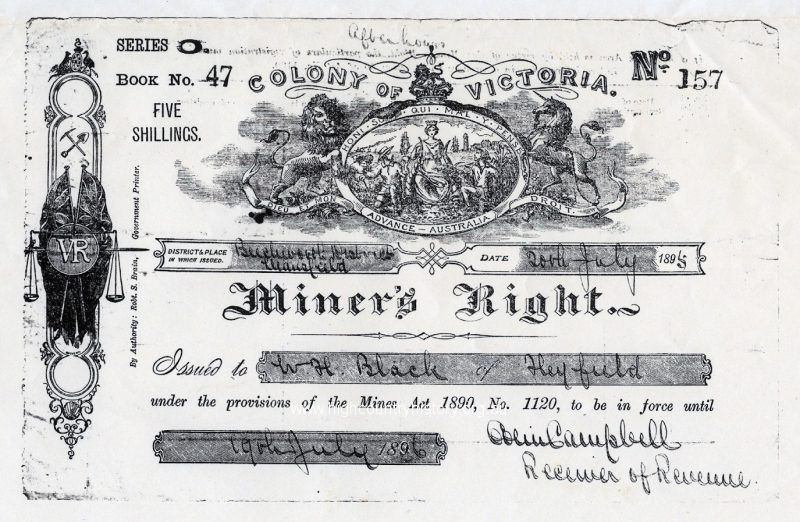 After hours
SERIES O
BOOK NO. 47
FIVE SHILLINGS.
COLONY OF VICTORIA.
No. 157
HONI SOIT QUI MAL Y PENSE
DIEU ET MON DROIT.
ADVANCE - AUSTRALIA
VR
By Authority: Robt. S. Brain, Government Printer.
DISTRICT & PLACE IN WHICH ISSUED. Beechworth District Mansfield
DATE 20th July 1895
Miner's Right.
Issued to W H. Black of Heyfield
under the provisions of the Mines Act 1890, No. 1120, to be in force until
19th July 1896
Campbell
Receiver of Revenue.